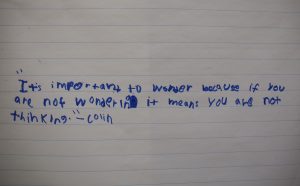 "It's important to wonder because if you
are not wondering it means you are not
thinking." - Colin